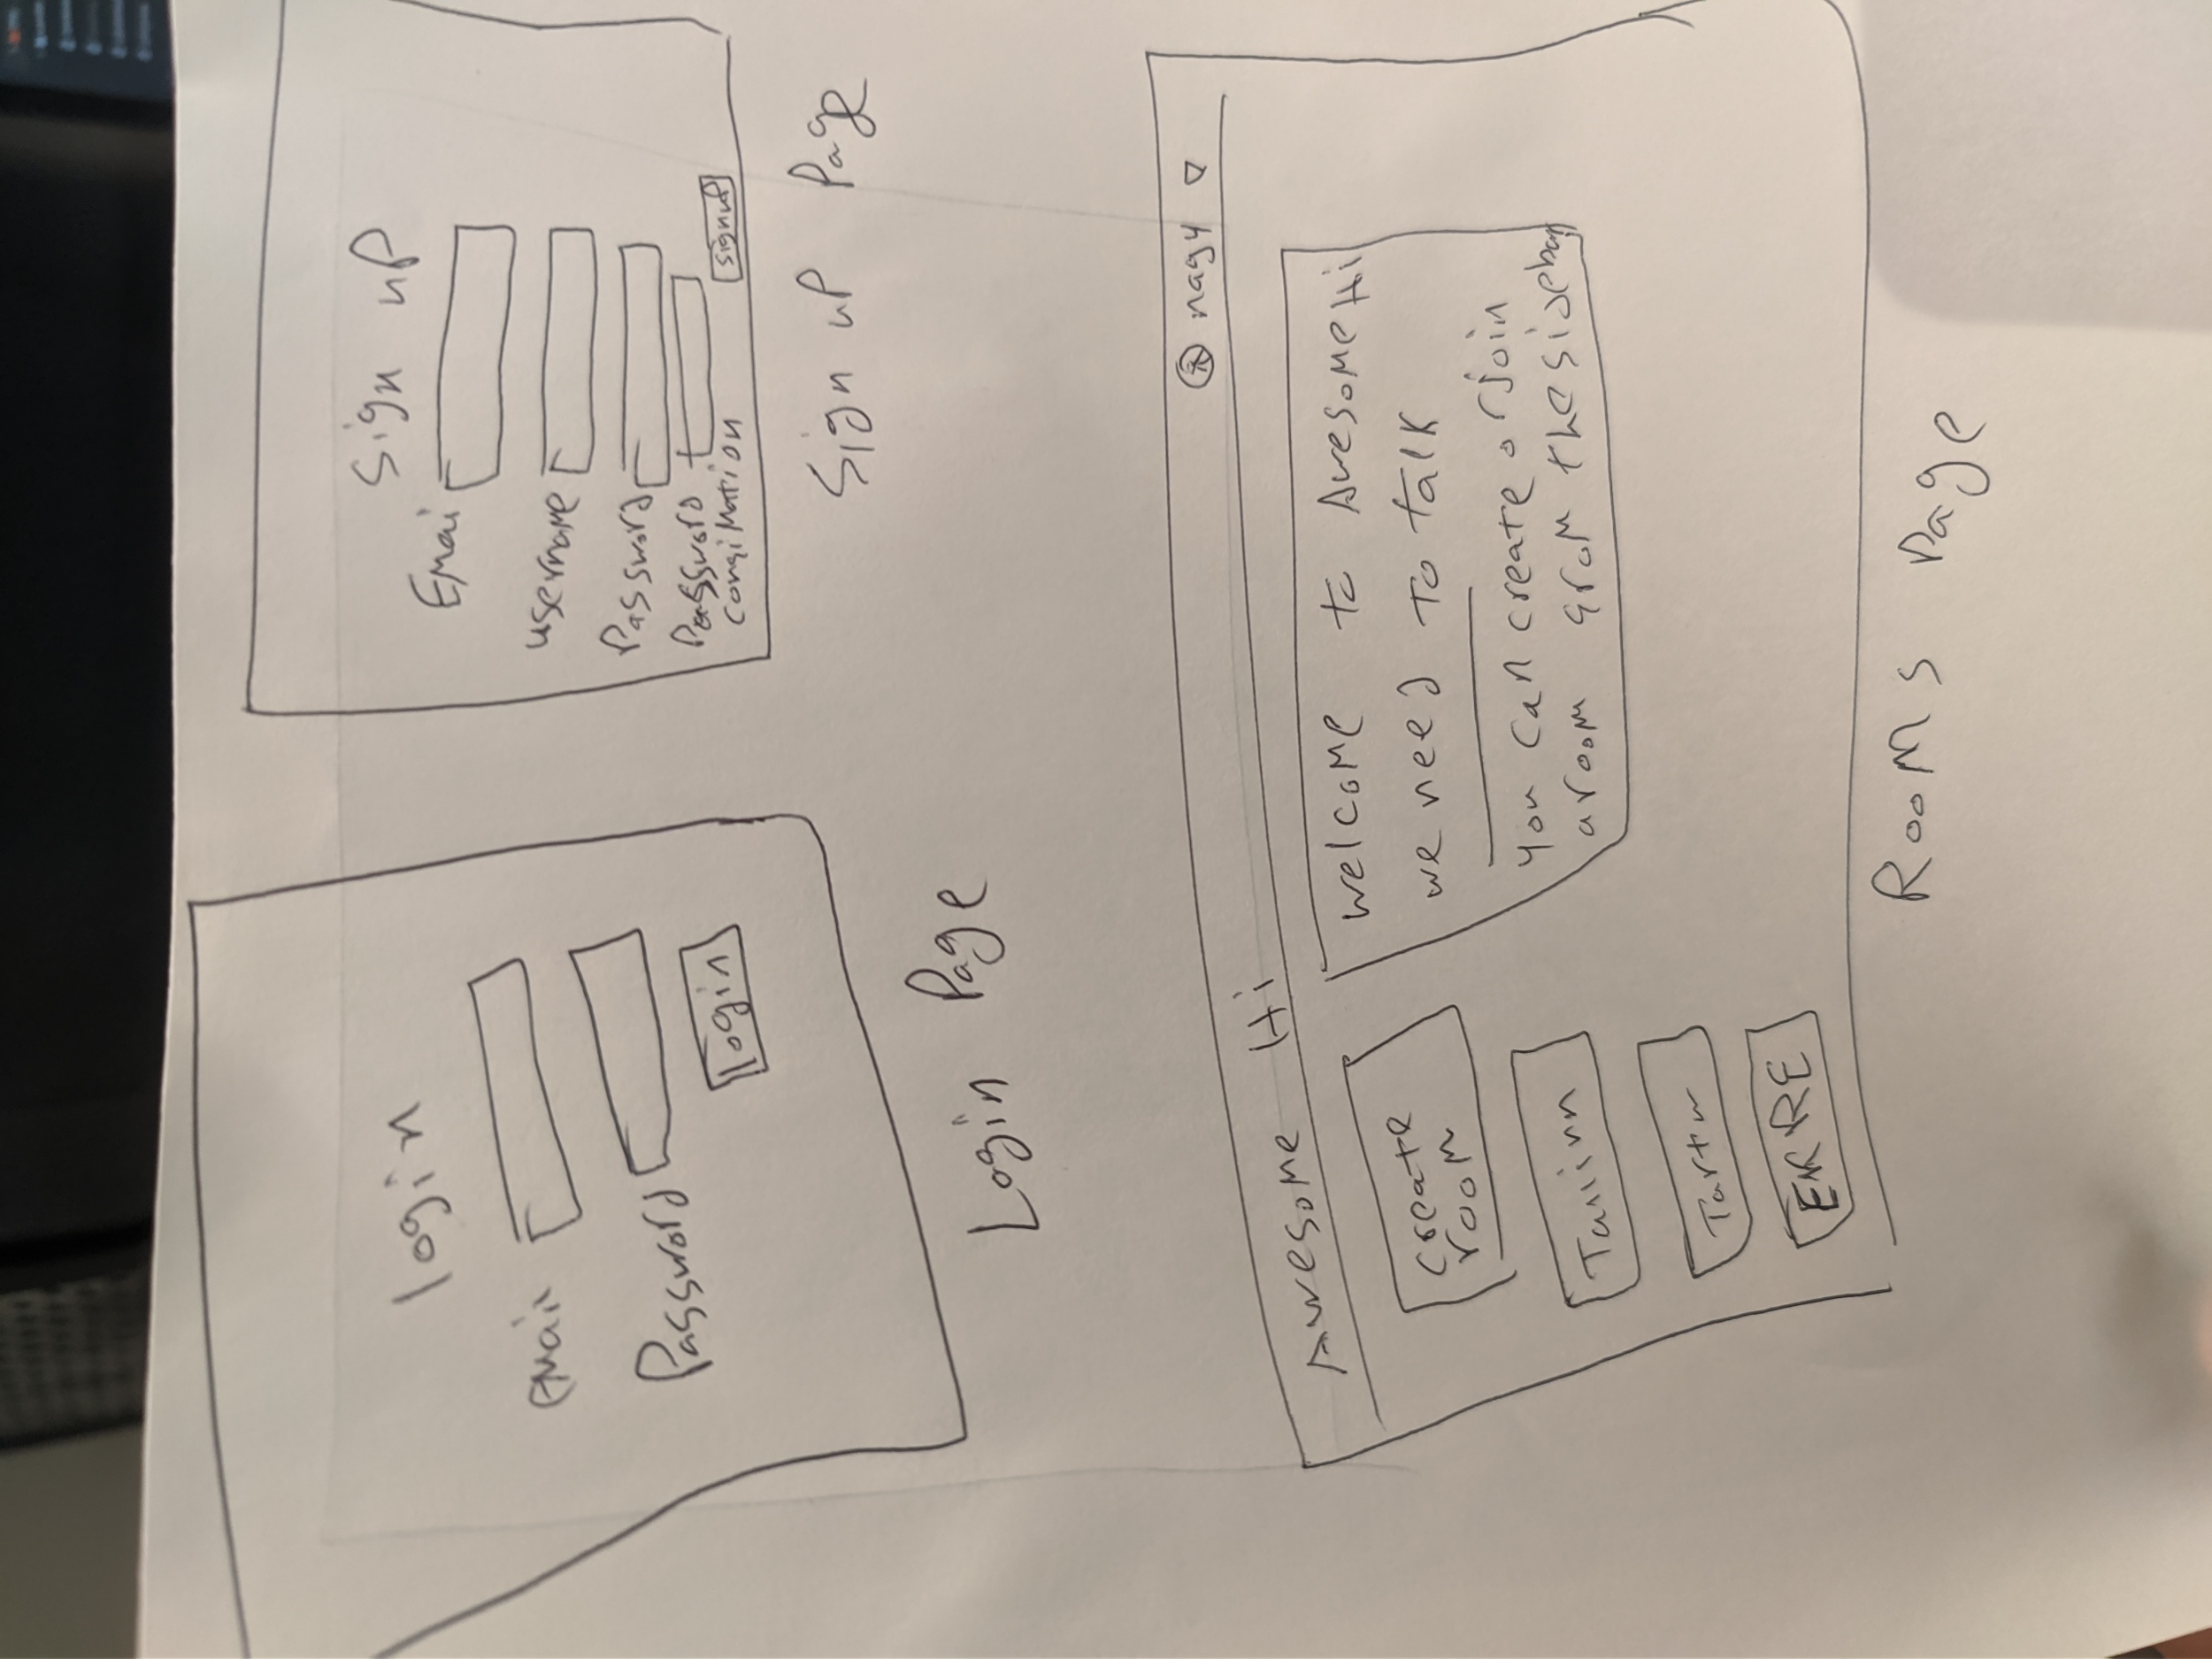 login
Email
Password
login
Login Page
Sign up
Emai
username
Password
Password
congimation
signup
Sign up Page
Awesome Hi
nagy
create
room
Tallinn
Tartu
ERRE
welcome to AwesomeHi
we need to talk
you can create or join
a room from the sidebar
Rooms Page